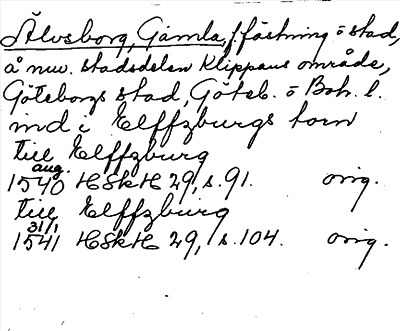 Älvsborg, Gamla, f. fästning o stad,
å nuv. stadsdelen Klippans område,
Göteborgs stad, Göteb. o Boh. l.
ind i Elffzburgs torn
till Elffzburg
aug.
1540 HSkH 29, s. 91. orig.
till Elffzburg
31/1
1541 HSkH 29, s. 104. orig.